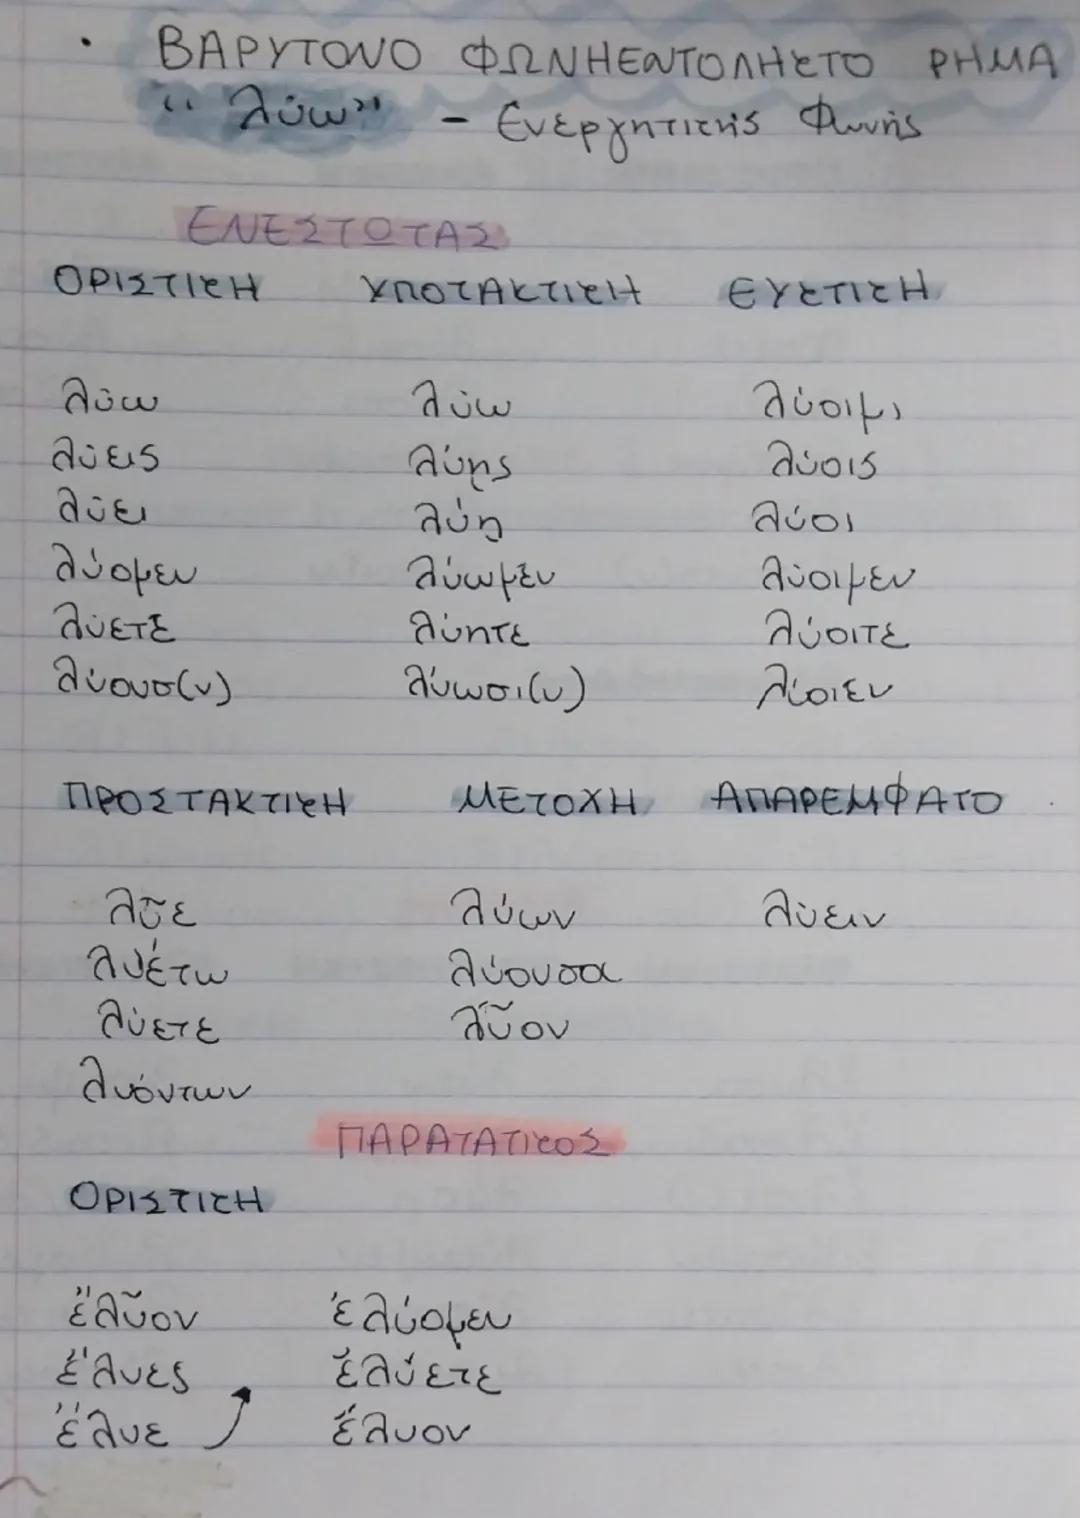 · ΒΑΡΥΤΟΝΟ ΦΩΝΗΕΝΤΟΛΗΚΤΟ ΡΗΜΑ
“λύω” - Ενεργητικής Φωνής
ΕΝΕΣΤΩΤΑΣ
ΟΡΙΣΤΙΚΗ ΥΠΟΤΑΚΤΙΚΗ ΕΥΚΤΙΚΗ
λύω λύω λύοιμι
λύεις λύης λύοις
λύει λύη λύοι
λύομεν λύωμεν λύοιμεν
λύετε λύητε λύοιτε
λύουσ(ν) λύωσι(ν) λύοιεν
ΠΡΟΣΤΑΚΤΙΚΗ ΜΕΤΟΧΗ ΑΠΑΡΕΜΦΑΤΟ
λῦε λύων λύειν
λυέτω λύουσα
λύετε λῦον
λυόντων
ΠΑΡΑΤΑΤΙΚΟΣ
ΟΡΙΣΤΙΚΗ
ἔλῦον ἐλύομεν
ἔλυες ἐλύετε
ἔλυε ἔλυον